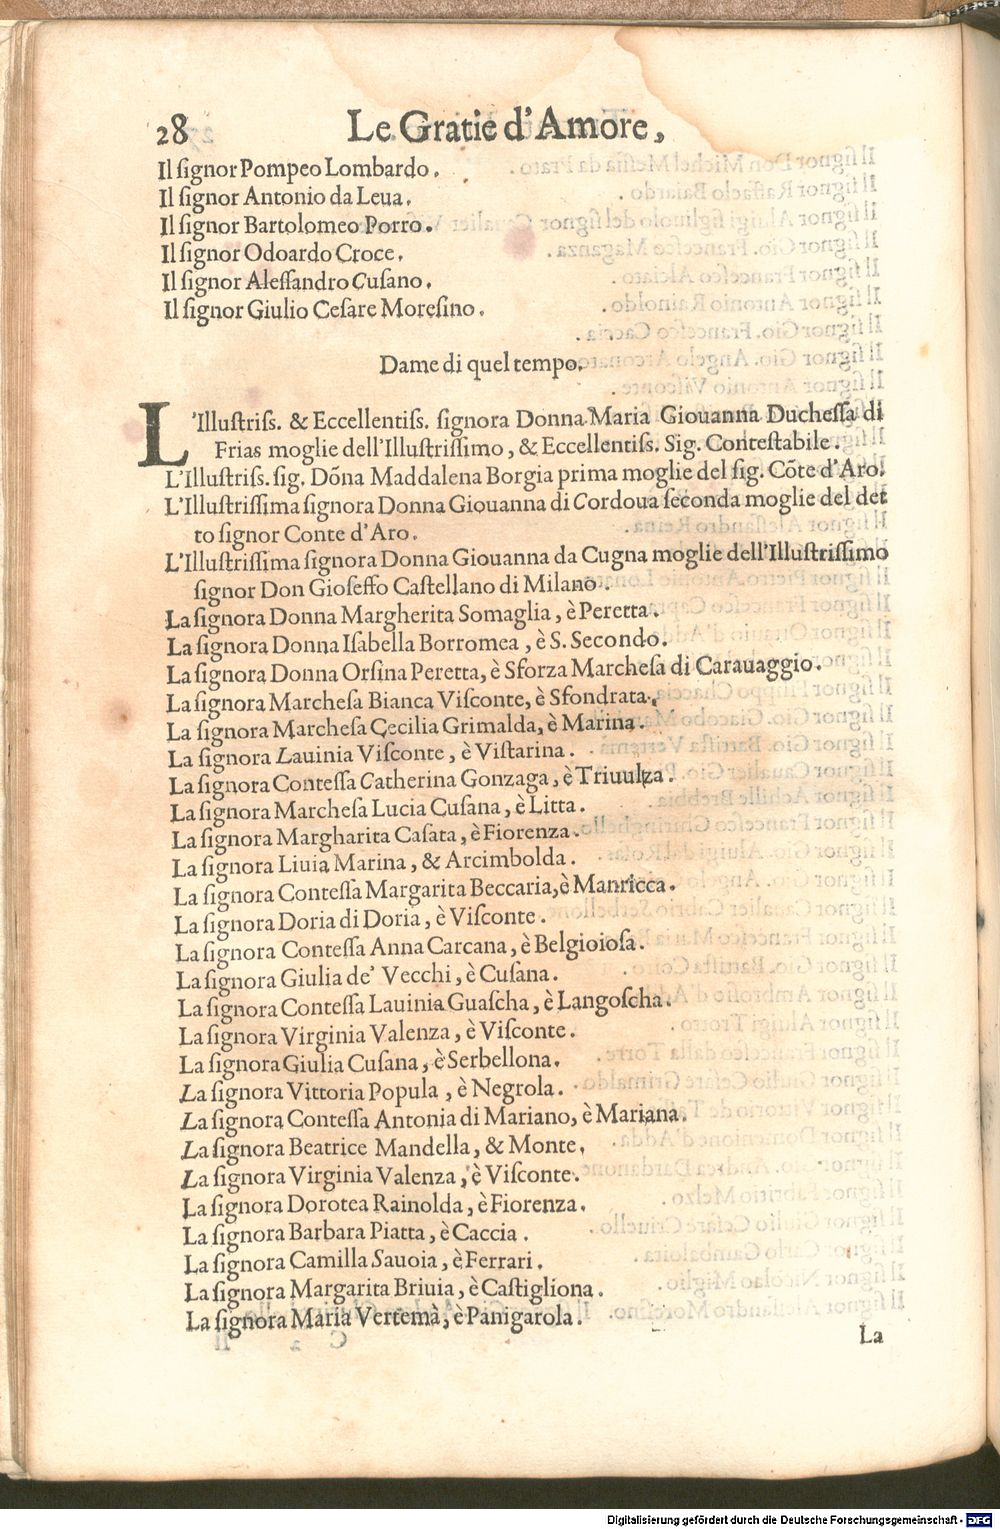 28 Le Gratie d'Amore,
Il ſignor Pompeo Lombardo.
Il ſignor Antonio da Leua.
Il ſignor Bartolomeo Porro.
Il ſignor Odoardo Croce.
Il ſignor Aleſſandro Cuſano.
Il ſignor Giulio Ceſare Moreſino.
Dame di quel tempo.
L'Illuſtriſſ. & Eccellentiſſ. ſignora Donna Maria Giouanna Ducheſſa di
Frias moglie dell'Illuſtriſſimo, & Eccellentiſſ. Sig. Conteſtabile.
L'Illuſtriſſ. ſig. Dõna Maddalena Borgia prima moglie del ſig. Cõte d'Aro.
L'Illuſtriſſima ſignora Donna Giouanna di Cordoua ſeconda moglie del det
to ſignor Conte d'Aro.
L'Illuſtriſſima ſignora Donna Giouanna da Cugna moglie dell'Illuſtriſſimo
ſignor Don Gioſeffo Caſtellano di Milano.
La ſignora Donna Margherita Somaglia, è Peretta.
La ſignora Donna Iſabella Borromea, è S. Secondo.
La ſignora Donna Orſina Peretta, è Sforza Marcheſa di Carauaggio.
La ſignora Marcheſa Bianca Viſconte, è Sfondrata.
La ſignora Marcheſa Cecilia Grimalda, è Marina.
La ſignora Lauinia Viſconte, è Viſtarina.
La ſignora Conteſſa Catherina Gonzaga, è Triuulza.
La ſignora Marcheſa Lucia Cuſana, è Litta.
La ſignora Margharita Caſata, è Fiorenza.
La ſignora Liuia Marina, & Arcimbolda.
La ſignora Conteſſa Margarita Beccaria, è Manricca.
La ſignora Doria di Doria, è Viſconte.
La ſignora Conteſſa Anna Carcana, è Belgioioſa.
La ſignora Giulia de' Vecchi, è Cuſana.
La ſignora Conteſſa Lauinia Guaſcha, è Langoſcha.
La ſignora Virginia Valenza, è Viſconte.
La ſignora Giulia Cuſana, è Serbellona.
La ſignora Vittoria Popula, è Negrola.
La ſignora Conteſſa Antonia di Mariano, è Mariana.
La ſignora Beatrice Mandella, & Monte.
La ſignora Virginia Valenza, è Viſconte.
La ſignora Dorotea Rainolda, è Fiorenza.
La ſignora Barbara Piatta, è Caccia.
La ſignora Camilla Sauoia, è Ferrari.
La ſignora Margarita Briuia, è Caſtigliona.
La ſignora Maria Vertemà, è Panigarola.
La
Digitalisierung gefördert durch die Deutsche Forschungsgemeinschaft - DFG